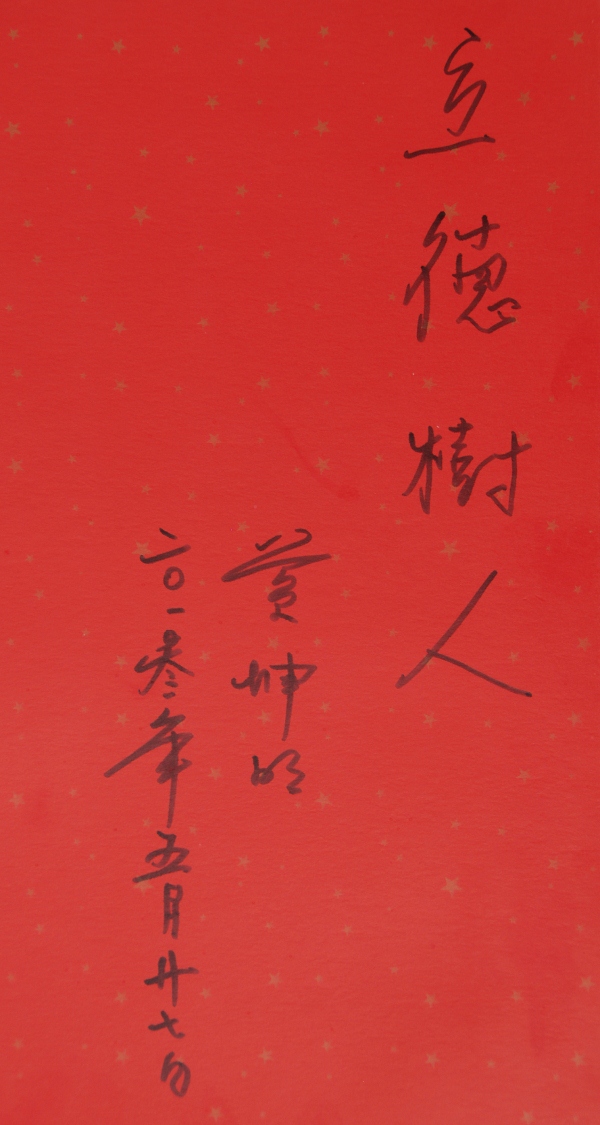 立德樹人
黄坤明
二〇一叁年五月廿七日